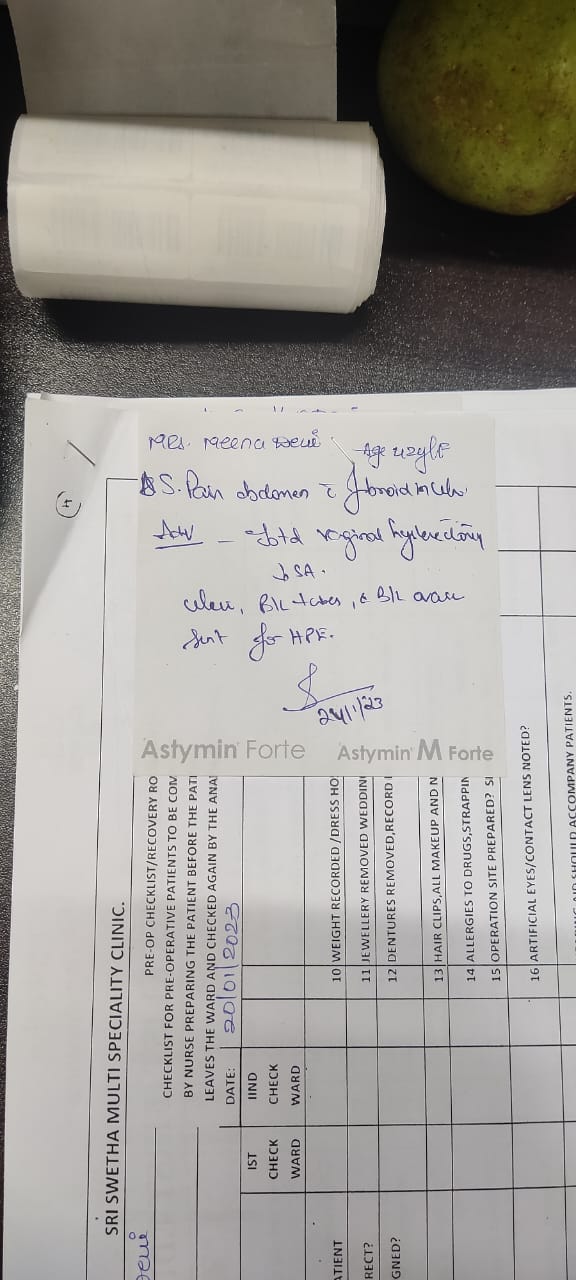 Mrs. Meena Devi
Age 42y/F
S. Pain abdomen c̄ fibroid in
Adv - Total vaginal hysterectomy
↓ SA.
B/L tubes, & B/L
Sent for HPE.
24/1/23
Astymin Forte Astymin M Forte
SRI SWETHA MULTI SPECIALITY CLINIC.
PRE-OP CHECKLIST/RECOVERY RO
CHECKLIST FOR PRE-OPERATIVE PATIENTS TO BE COM
BY NURSE PREPARING THE PATIENT BEFORE THE PATI
LEAVES THE WARD AND CHECKED AGAIN BY THE ANA
DATE: 20/01/2023
IST CHECK WARD
IIND CHECK WARD
10 WEIGHT RECORDED /DRESS HO
11 JEWELLERY REMOVED WEDDIN
12 DENTURES REMOVED,RECORD
13 HAIR CLIPS,ALL MAKEUP AND N
14 ALLERGIES TO DRUGS,STRAPPIN
15 OPERATION SITE PREPARED?
16 ARTIFICIAL EYES/CONTACT LENS NOTED?
SHOULD ACCOMPANY PATIENTS.
ATIENT
RECT?
GNED?